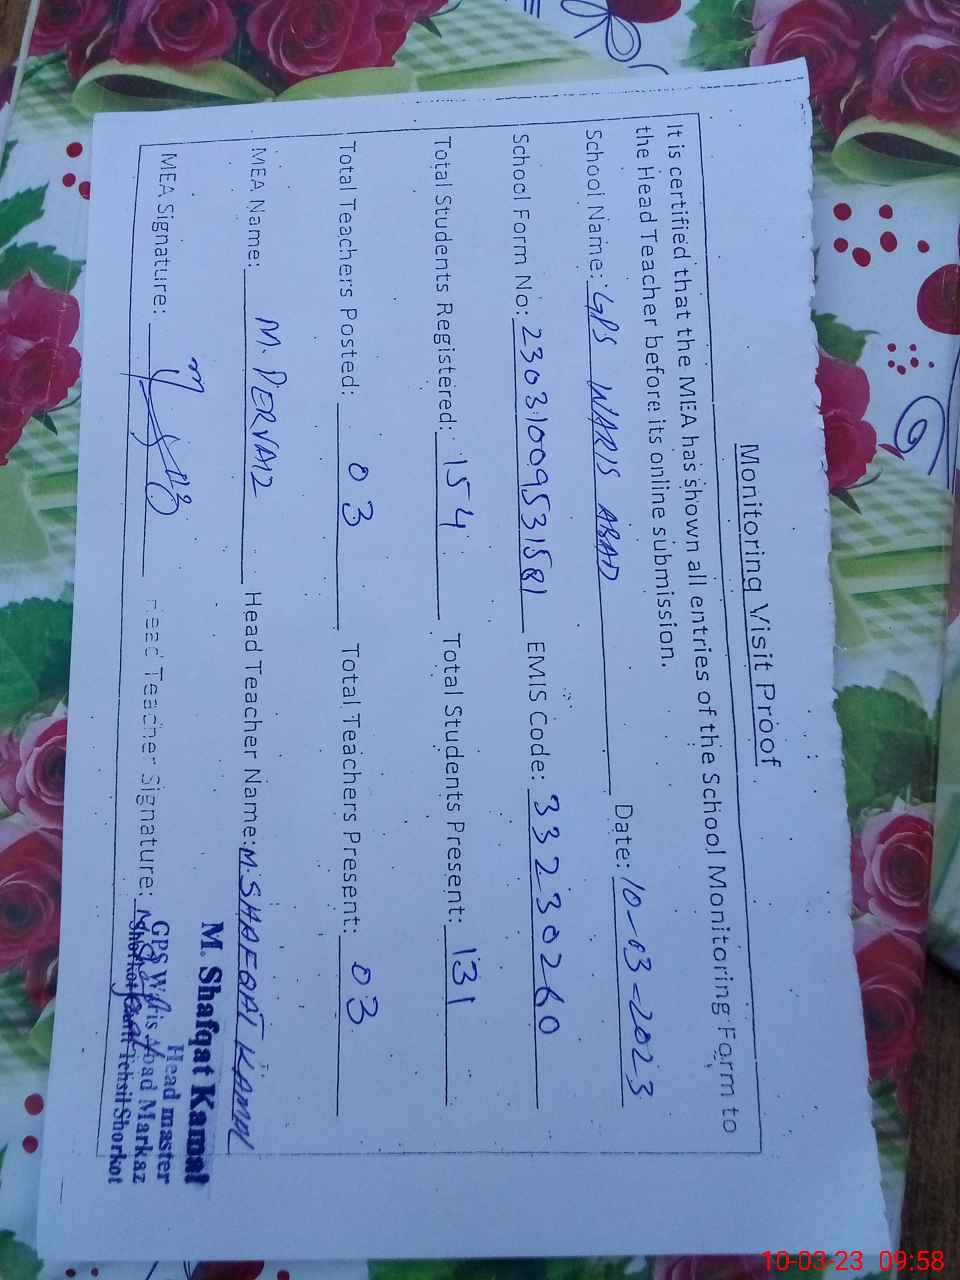 Monitoring Visit Proof
It is certified that the MEA has shown all entries of the School Monitoring Form to
the Head Teacher before its online submission.
School Name: GPS WARIS ABAD Date: 10-03-2023
School Form No: 23031009531581 EMIS Code: 33230260
Total Students Registered: 154 Total Students Present: 131
Total Teachers Posted: 03 Total Teachers Present: 03
MEA Name: M. PERVAIZ Head Teacher Name: M. SHAFQAT KAMAL
MEA Signature: Head Teacher Signature:
M. Shafqat Kamal
Head master
GPS Waris Abad Markaz
Shorkot Cantt Tehsil Shorkot
10-03-23 09:58